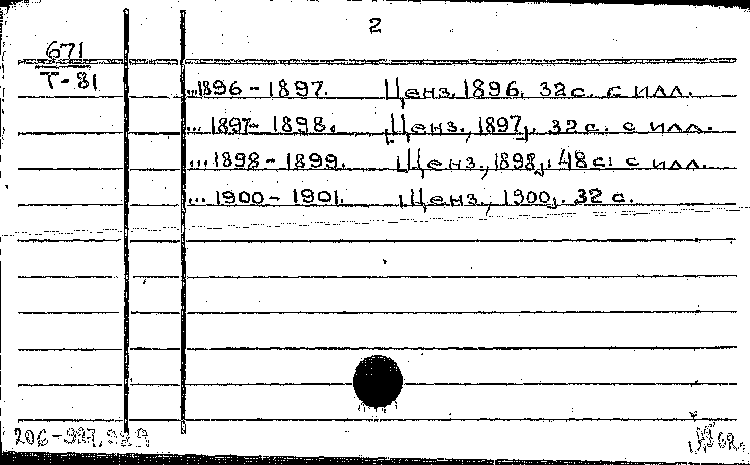 2
671
Т-81
...1896-1897. Ценз. 1896. 32 с. с илл.
...1897-1898. [Ценз., 1897]. 32 с. с илл.
...1898-1899. [Ценз., 1898]. 48 с. с илл.
...1900-1901. [Ценз., 1900]. 32 с.
206-987,989